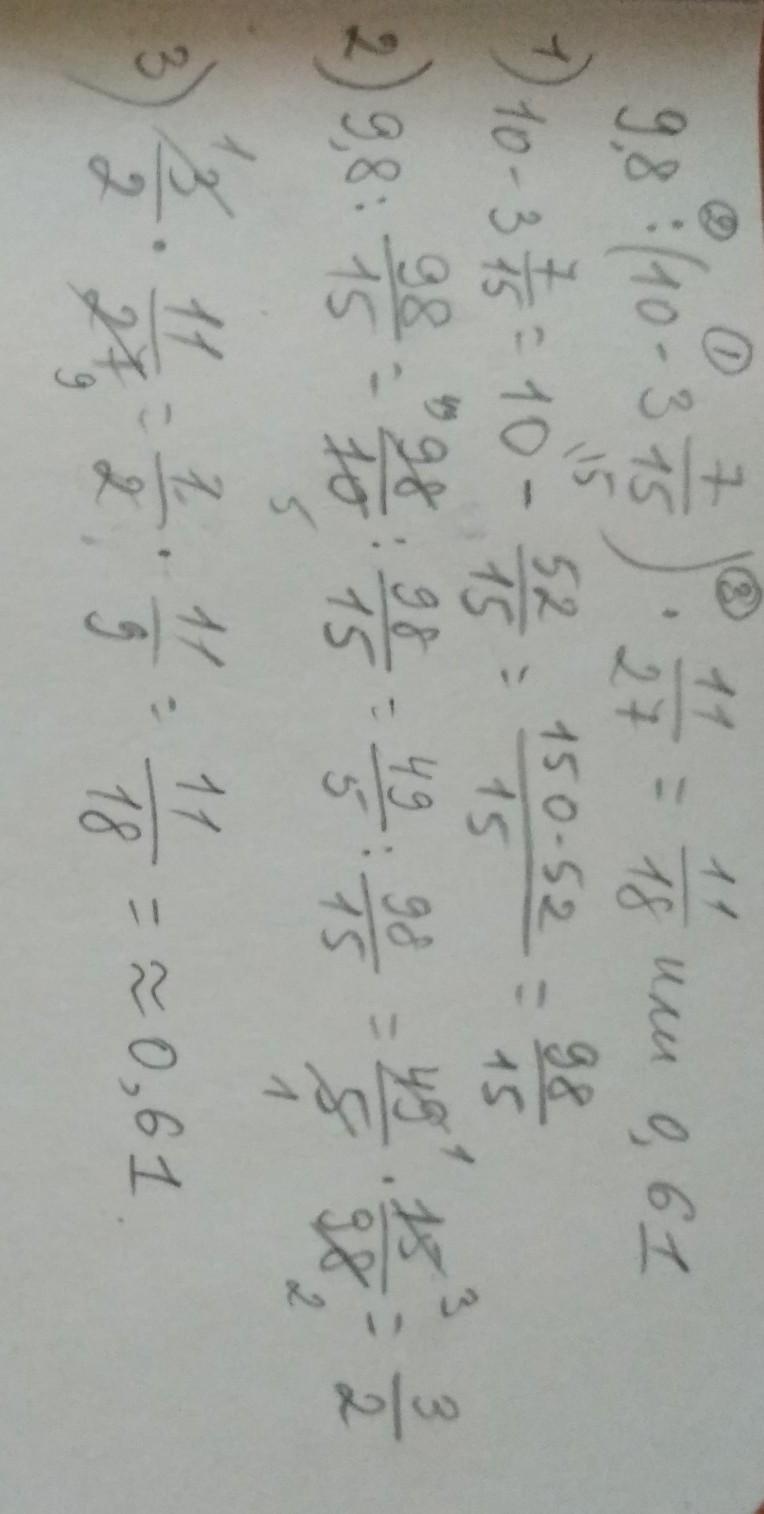 9,8 : (10 - 3 7/15) · 11/27 = 11/18 или 0,61
1) 10 - 3 7/15 = 10 - 52/15 = 150-52/15 = 98/15
2) 9,8 : 98/15 = 98/10 : 98/15 = 49/5 : 98/15 = 49/5 · 15/98 = 3/2
3) 3/2 · 11/27 = 1/2 · 11/9 = 11/18 = ≈ 0,61